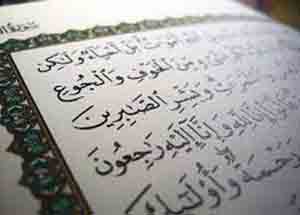 أَمْوَٰتٌ بَلْ أَحْيَآءٌ وَلَٰكِن
مِّنَ ٱلْخَوْفِ وَٱلْجُوعِ
وَبَشِّرِ ٱلصَّٰبِرِينَ
إِنَّا لِلَّهِ وَإِنَّآ إِلَيْهِ رَٰجِعُونَ
وَرَحْمَةٌ وَأُو۟لَٰٓئِكَ